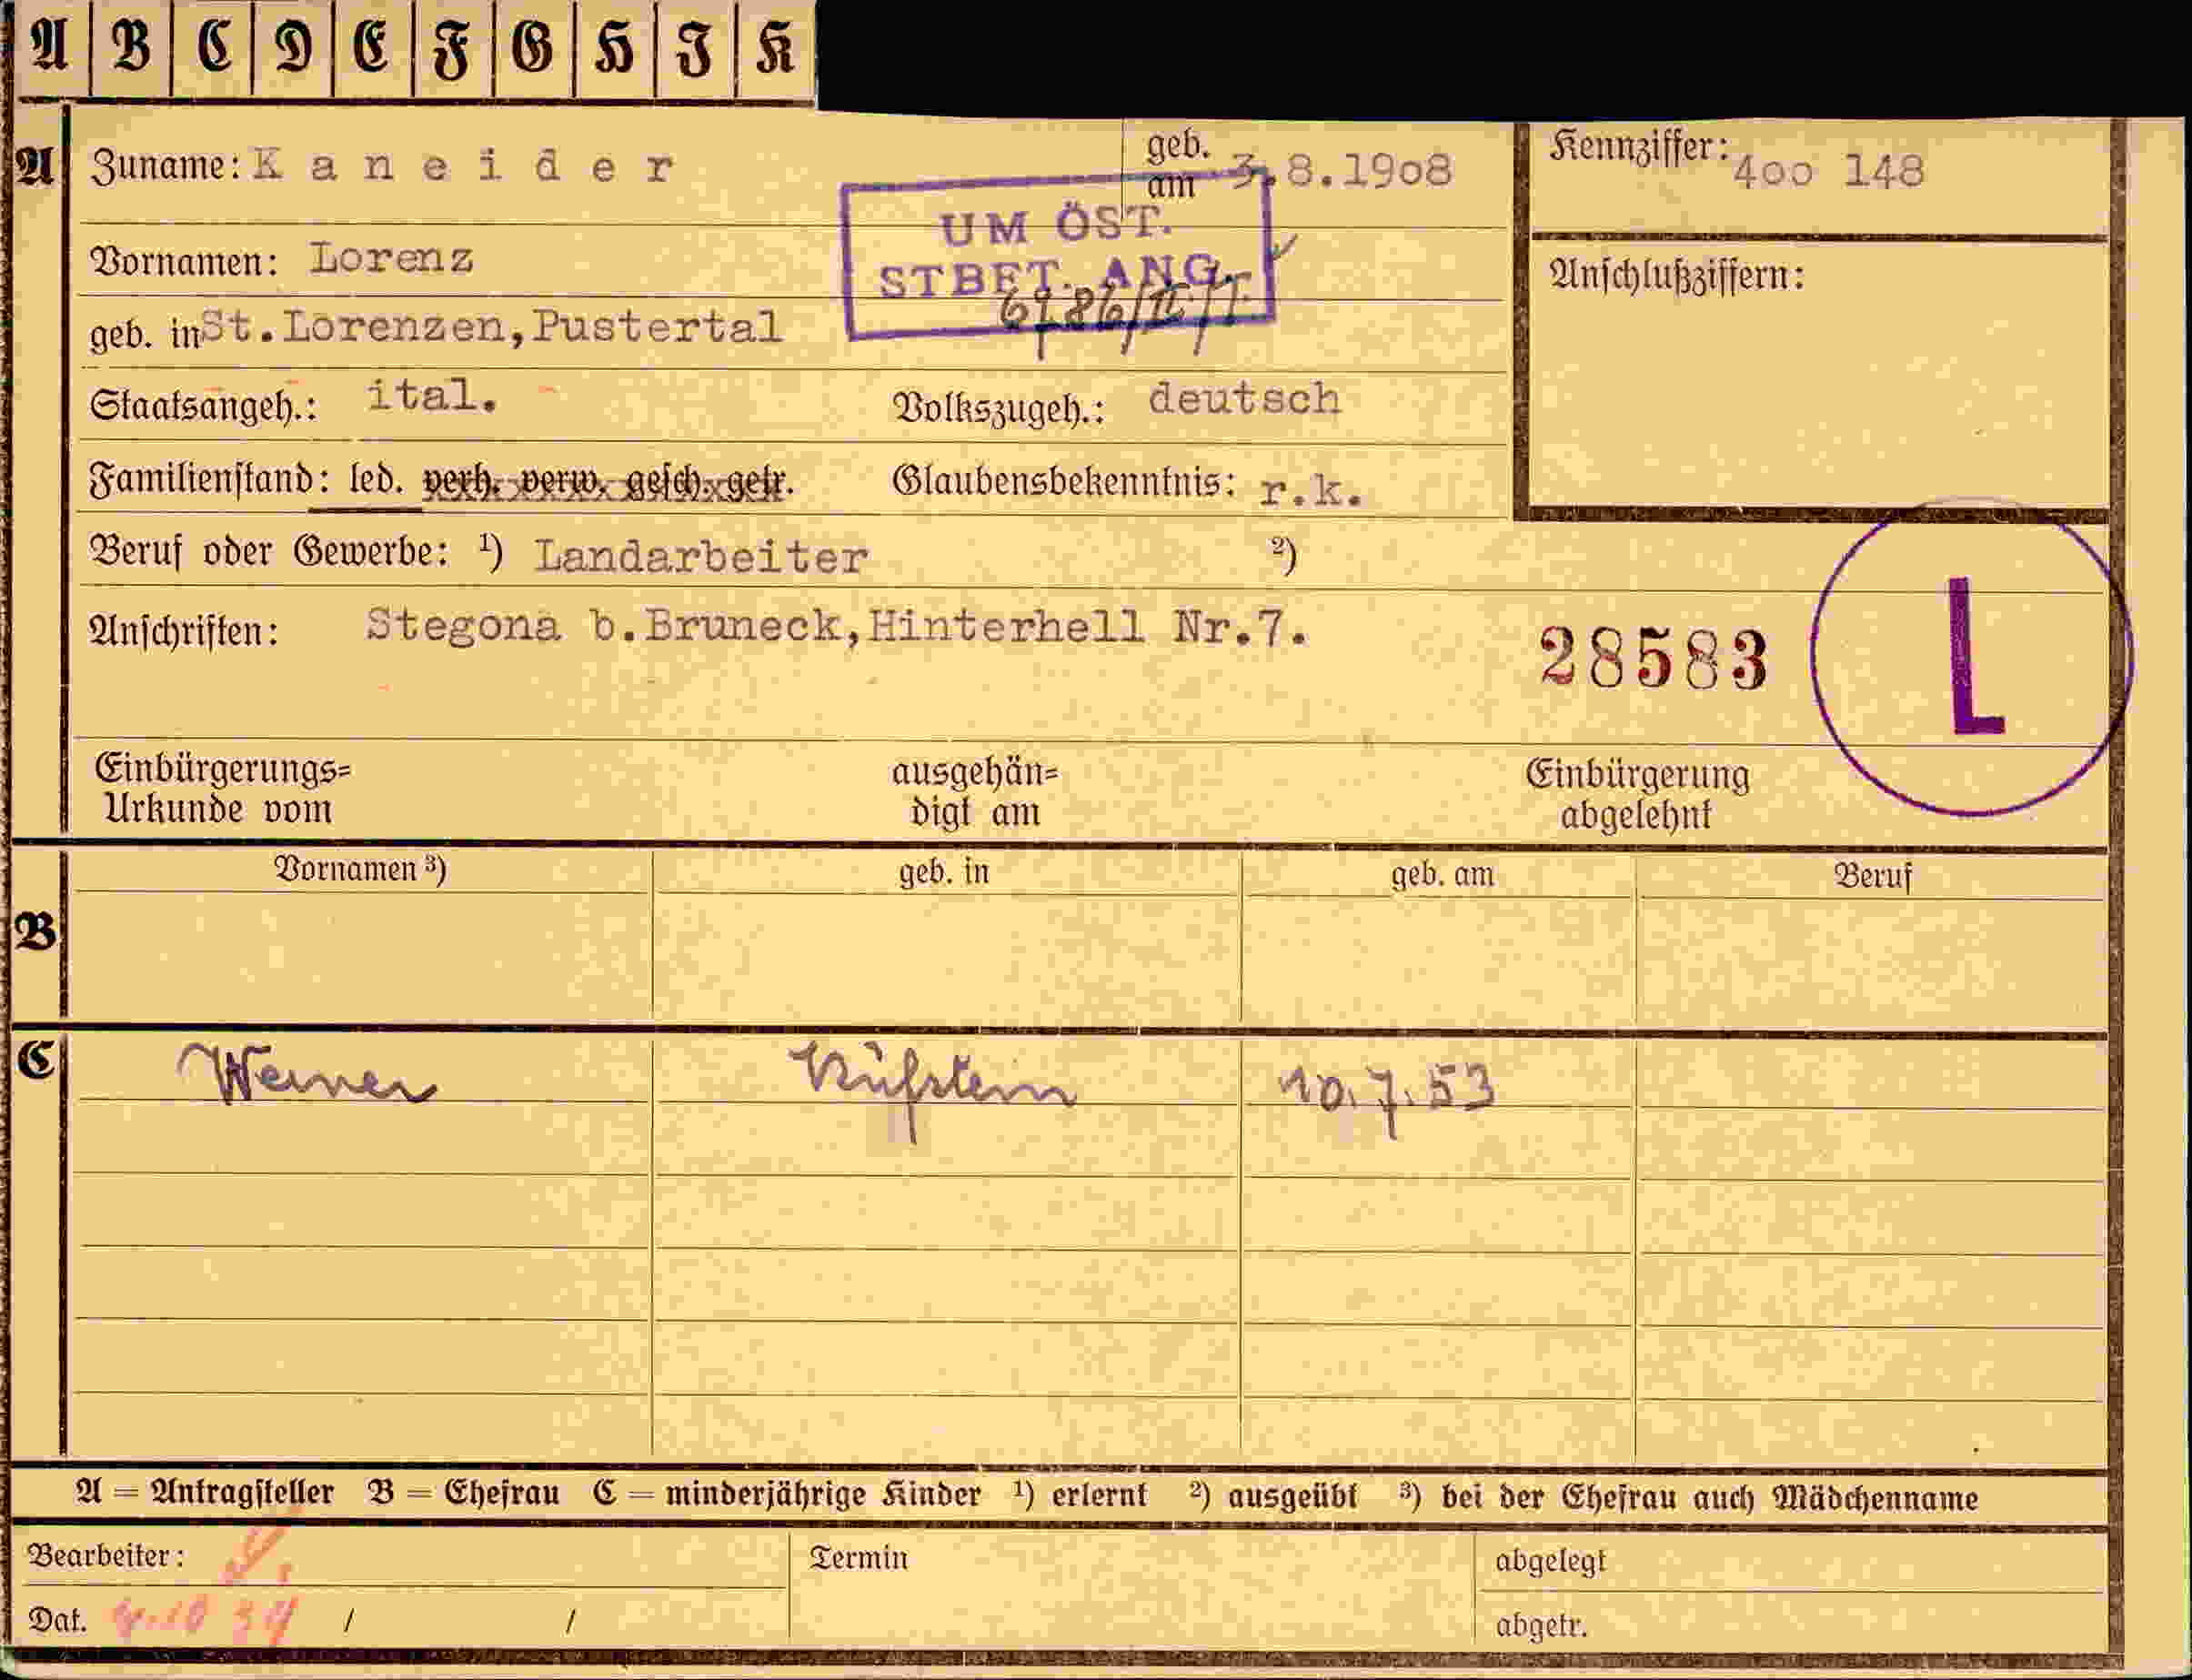 A B C D E F G H J K
A Zuname: Kaneider geb. am 3.8.1908 Kennziffer: 4oo 148
UM ÖST.
STBET. ANG.
Vornamen: Lorenz
Anschlußziffern:
geb. in St.Lorenzen,Pustertal
Staatsangeh.: ital. Volkszugeh.: deutsch
Familienstand: led. verh. verw. gesch. getr. Glaubensbekenntnis: r.k.
Beruf oder Gewerbe: ¹) Landarbeiter ²)
Anschriften: Stegona b.Bruneck,Hinterhell Nr.7.
28583 L
Einbürgerungs= ausgehän= Einbürgerung
Urkunde vom digt am abgelehnt
Vornamen ³) geb. in geb. am Beruf
B
C Werner Kufstein 10.7.53
A = Antragsteller B = Ehefrau C = minderjährige Kinder ¹) erlernt ²) ausgeübt ³) bei der Ehefrau auch Mädchenname
Bearbeiter: Termin abgelegt
Dat. / / abgetr.